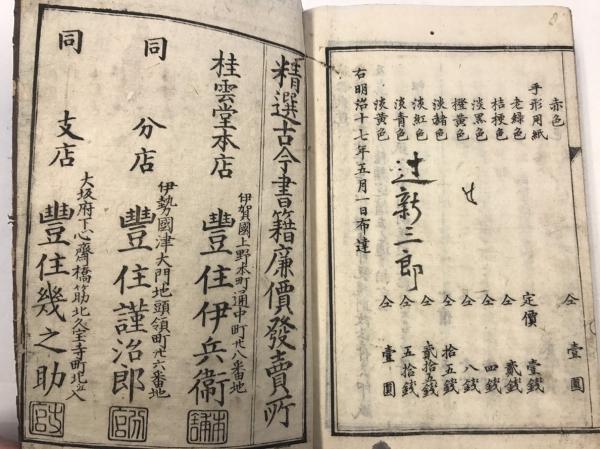 赤色 仝 壹圓
手形用紙
老綠色 定價 壹錢
桔梗色 仝 貳錢
淡黑色 仝 四錢
橙黄色 仝 八錢
淡赭色 仝 拾五錢
淡紅色 仝 貳拾五錢
淡青色 仝 五拾錢
淡黄色 仝 壹圓
右明治十七年五月一日布達
辻新三郎
精選古今書籍廉價發賣所
伊賀國上野本町通中町卅八番地
桂雲堂本店 豐住伊兵衞
伊勢國津大門地頭領町卅六番地
同 分店 豐住謹治郎
大坂府下心齋橋筋北久宝寺町北入
同 支店 豐住幾之助